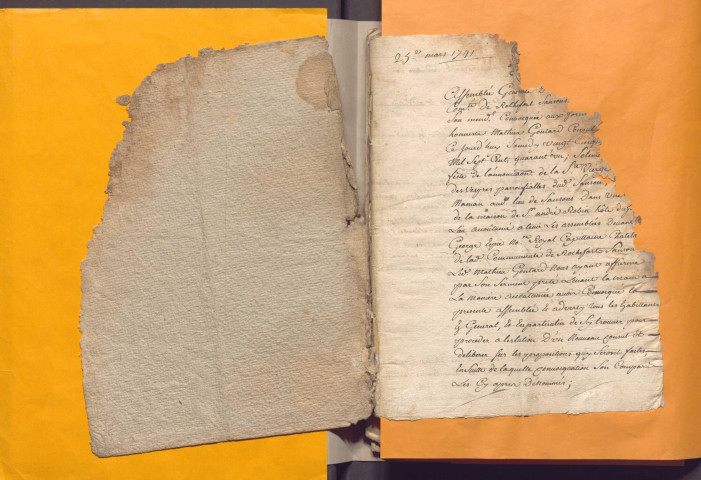 25e mars 1741
Assemblée Generale
Comté de Rochefort Sanson
Son mend.t Convoquée aux formes
honneste Mathieu Goutard Consul
Ce Jourd'huy Samedy vingt Cinqui
Mil Sept Cent quarante un; Solem
feste de l'anonciaon de la Ste Vierge
des Vepres parroissialles dud. Sanson
Maman aud. lieu de Sansons Dans une
de la maison de Sr andré Robin hôte dud
Lieu a tenir Les assemblées Devant
George Royal Capitaine Chatela
de lad. Communauté de Rochefort Sanson
Led. Mathieu Goutard Nous ayant affirmé
par Son Serment preté Levant la main a
La Maniere accoutumée avoir Convoqué la
presente assemblée & adverty tous les habittants
En General, & En particulier de Sy trouver pour
proceder a lelection D'un Nouveau Consul et
deliberer Sur les propositions quy Seront faites,
En Suitte de laquelle convoquation Son Comparû
Les Cy apres Denommés;